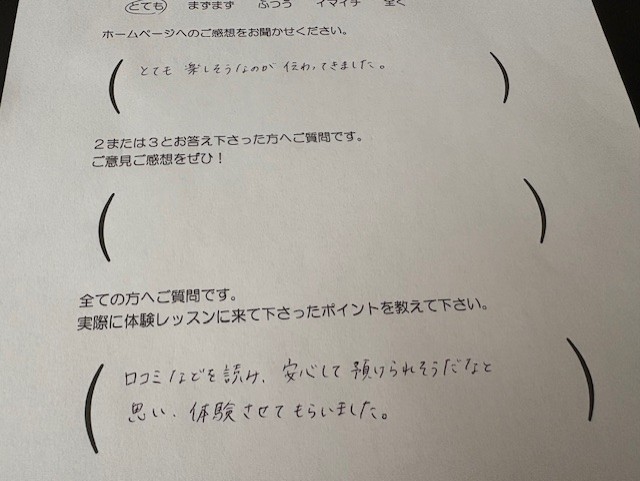 とても まずまず ふつう イマイチ 全く
ホームページへのご感想をお聞かせください。
とても 楽しそうなのが 伝わってきました。
２または３とお答え下さった方へご質問です。
ご意見ご感想をぜひ！
全ての方へご質問です。
実際に体験レッスンに来て下さったポイントを教えて下さい。
口コミなどを読み、安心して預けられそうだなと
思い、体験させてもらいました。